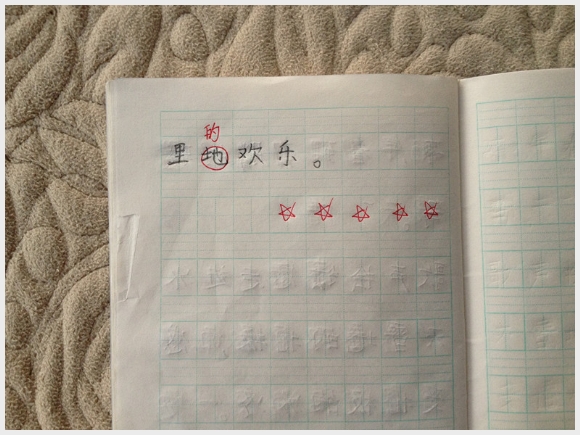 的
里地欢乐。